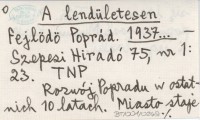 A lendületesen
Fejlödö Poprád. 1937... –
Szepesi Hiradó 75, nr 1:
23. TNP
Rozwój Popradu w ostat-
nich 10 latach. Miasto staje